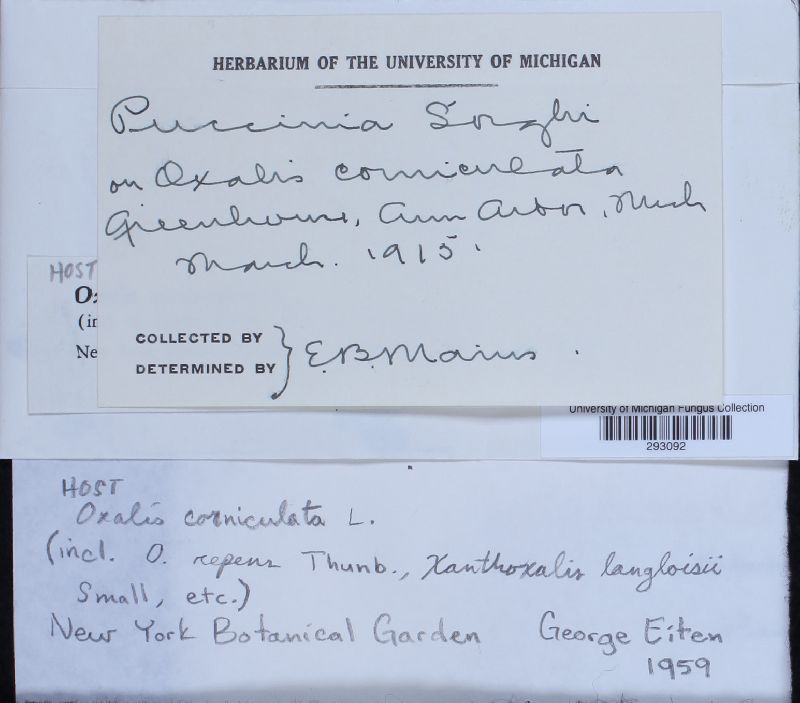 HERBARIUM OF THE UNIVERSITY OF MICHIGAN
Puccinia Sorghi
on Oxalis corniculata
Greenhouse, Ann Arbor, Mich
March. 1915.
HOST
Ox
(in
Ne
COLLECTED BY
DETERMINED BY } E.B. Mains.
University of Michigan Fungus Collection
293092
HOST
Oxalis corniculata L.
(incl. O. repens Thunb., Xanthoxalis langloisii
Small, etc.)
New York Botanical Garden George Eiten
1959